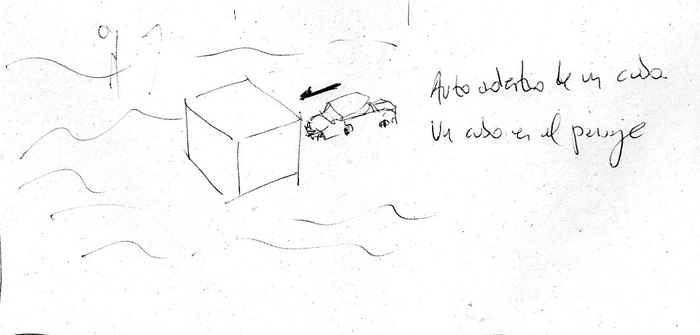 Auto adentro de un cubo
Un cubo en el paisaje